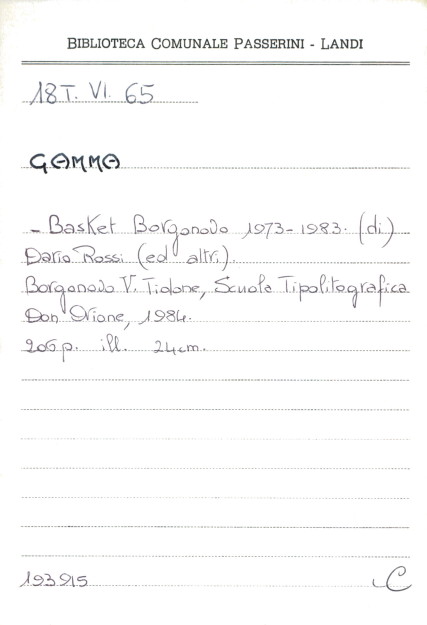 BIBLIOTECA COMUNALE PASSERINI - LANDI
18T. VI. 65
GAMMA
- Basket Borgonovo 1973-1983. (di)
Dario Rossi (ed altri).
Borgonovo V. Tidone, Scuola Tipolitografica
Don Orione, 1984.
206 p. ill. 24 cm.
193915 C